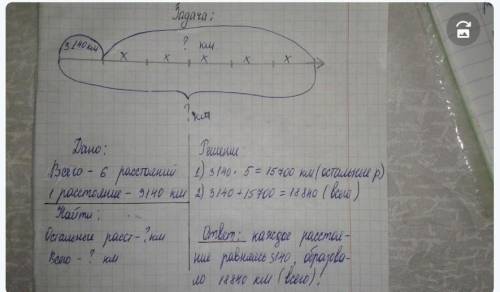 Задача:
3140 км
? км
х х х х х
? км
Дано:
Всего - 6 расстояний
1 расстояние - 3140 км
Найти:
Остальные расст - ? км
Всего - ? км
Решение
1) 3140 · 5 = 15700 км (остальные р)
2) 3140 + 15700 = 18840 (всего)
Ответ: каждое расстоя-
ние равнялось 3140, образова-
ло 18840 км (всего)!